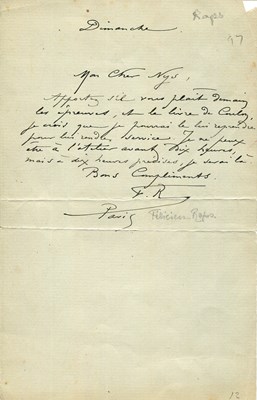 Rops
47
Dimanche
Mon Cher Nys,
Apportez s'il vous plaît demain
les épreuves, et le livre de
je crois que je pourrai le lui reprendre
pour lui rendre service. Je ne peux
être à l'atelier avant dix heures,
mais à dix heures précises, je serai là
Bons Compliments.
F. R
Paris
Félicien Rops.